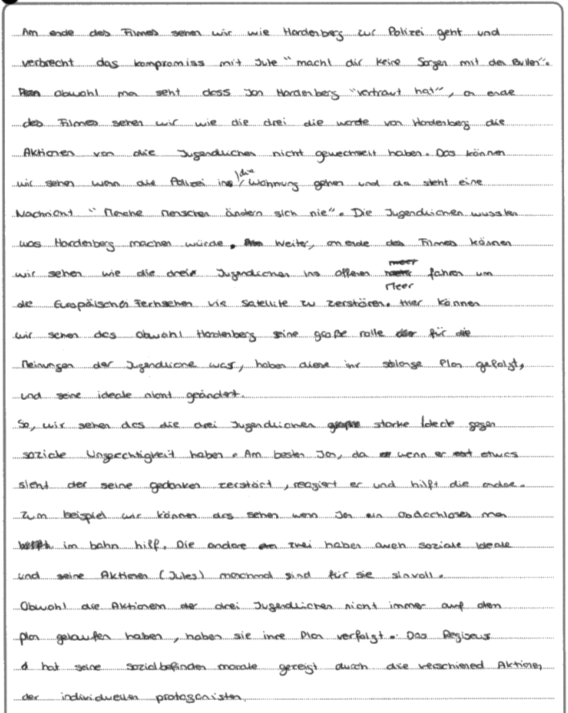 Am ende des Filmes sehen wir wie Hardenberg zur Polizei geht und
verbrecht das kompromiss mit Jule "macht dir keine Sorgen mit den Bullen".
obwohl man seht dass Jan Hardenberg "vertraut hat", an ende
des Filmes sehen wir wie die drei die worte von Hardenberg die
Aktionen von die Jugendlichen nicht gewechselt haben. Das können
wir sehen wenn die Polizei ins die Wohnung gehen und da steht eine
Nachricht "Manche Menschen ändern sich nie". Die Jugendlichen wussten
was Hardenberg machen würde. Weiter, am ende des Filmes können
wir sehen wie die dreie Jugendlichen ins offenen Meer fahren um
die Europäischer Fernsehen vie Satellite zu zerstören. Hier können
wir sehen das obwohl Hardenberg seine große rolle für die
Meinungen der Jugendliche war, haben diese ihr Plan gefolgt,
und seine ideale nicht geändert.
So, wir sehen das die drei Jugendlichen starke Ideale gegen
soziale Ungerechtigkeit haben. Am besten Jan, da wenn er etwas
sieht der seine gedanken zerstört, reagiert er und hilft die andre.
Zum beispiel wir können das sehen wenn Jan ein Obdachloses man
im bahn hilf. Die andere zwei haben auch soziale Ideale
und seine Aktionen (Jules) manchmal sind für sie sinvoll.
Obwohl die Aktionen der drei Jugendlichen nicht immer auf den
plan gelaufen haben, haben sie ihre Plan verfolgt. Das Regiseur
hat seine sozialbefinden morale gezeigt durch die verschiened Aktionen
der individuellen protagonisten.